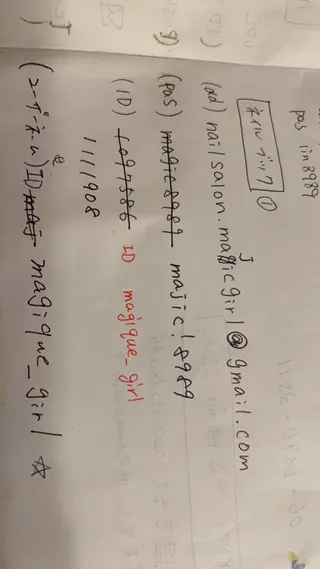 pas iin8989
ネイルブック ①
J
(ad) nailsalon.magicgirl@gmail.com
(pas) magic8989 majic!8989
(ID) 1097586 ID magique_girl
1111908
(ユーザーネーム) ID maj magique_girl ☆